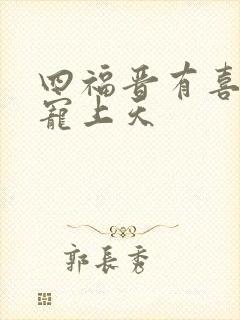 四福晋有喜
宠上天
郭长秀